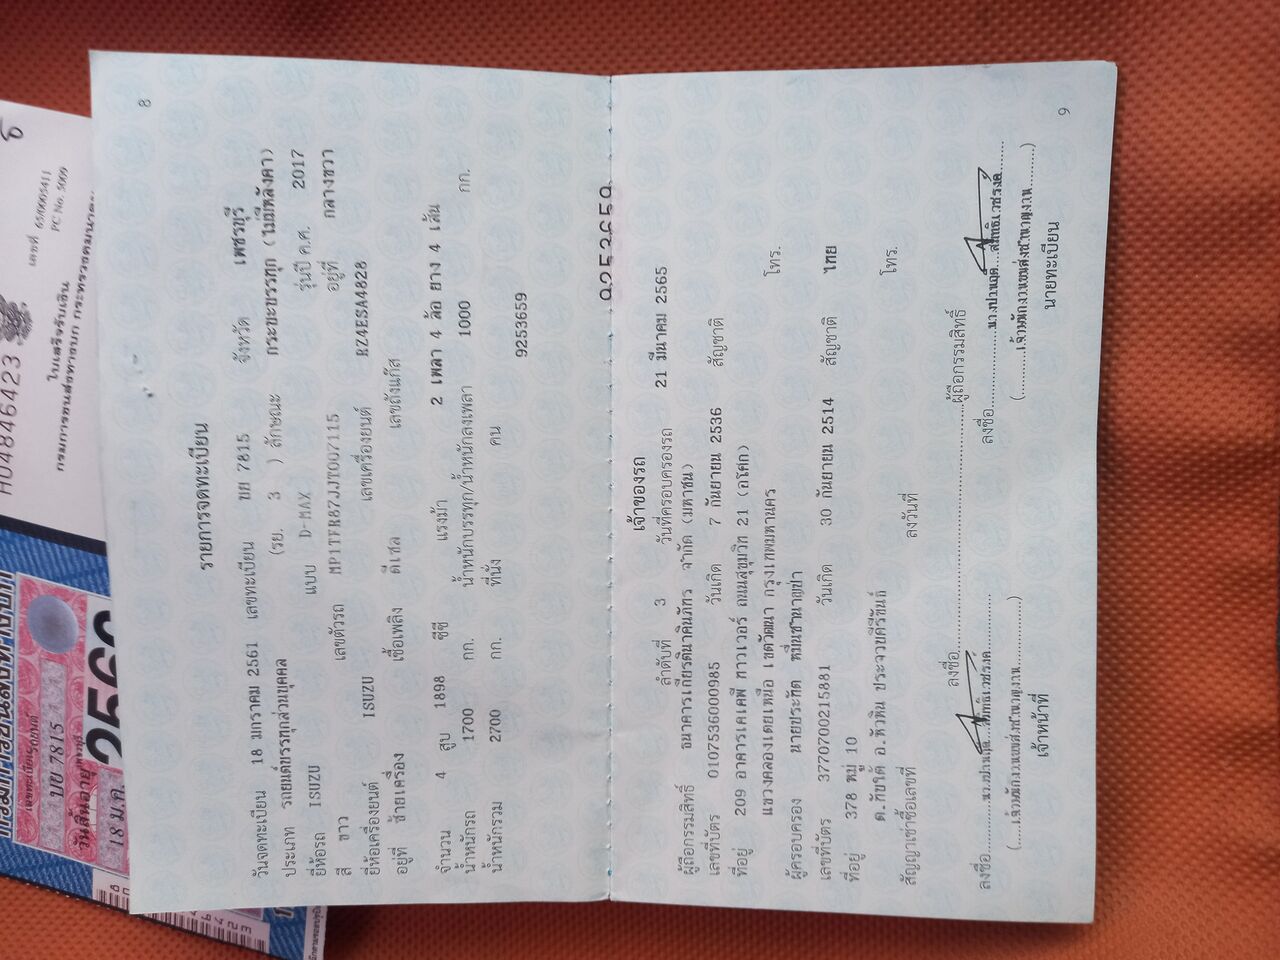 8
รายการจดทะเบียน
วันจดทะเบียน 18 มกราคม 2561 เลขทะเบียน ขย 7815 จังหวัด เพชรบุรี
ประเภท รถยนต์บรรทุกส่วนบุคคล (รย. 3 ) ลักษณะ กระบะบรรทุก (ไม่มีหลังคา)
ยี่ห้อรถ ISUZU แบบ D-MAX รุ่นปี ค.ศ. 2017
สี ขาว เลขตัวรถ MP1TFR87JJT007115 อยู่ที่ กลางขวา
ยี่ห้อเครื่องยนต์ ISUZU เลขเครื่องยนต์ RZ4ESA4828
อยู่ที่ ซ้ายเครื่อง เชื้อเพลิง ดีเซล เลขถังแก๊ส
จำนวน 4 สูบ 1898 ซีซี แรงม้า 2 เพลา 4 ล้อ ยาง 4 เส้น
น้ำหนักรถ 1700 กก. น้ำหนักบรรทุก/น้ำหนักลงเพลา 1000 กก.
น้ำหนักรวม 2700 กก. ที่นั่ง คน
9253659
9253659
เจ้าของรถ
ลำดับที่ 3 วันที่ครอบครองรถ 21 มีนาคม 2565
ผู้ถือกรรมสิทธิ์ ธนาคารเกียรตินาคินภัทร จำกัด (มหาชน)
เลขที่บัตร 0107536000985 วันเกิด 7 กันยายน 2536 สัญชาติ
ที่อยู่ 209 อาคารเคเคพี ทาวเวอร์ ถนนสุขุมวิท 21 (อโศก)
แขวงคลองเตยเหนือ เขตวัฒนา กรุงเทพมหานคร โทร.
ผู้ครอบครอง นายประทัด หมื่นชำนาญป่า
เลขที่บัตร 3770700215881 วันเกิด 30 กันยายน 2514 สัญชาติ ไทย
ที่อยู่ 378 หมู่ 10
ต.ทับใต้ อ.หัวหิน ประจวบคีรีขันธ์ โทร.
สัญญาเช่าซื้อเลขที่ ลงวันที่
ลงชื่อ ผู้ถือกรรมสิทธิ์
ลงชื่อ ลงชื่อ
(เจ้าพนักงานขนส่งชำนาญงาน) (เจ้าพนักงานขนส่งชำนาญงาน)
เจ้าหน้าที่ นายทะเบียน
9
H04846423
เลขที่ 65/0005411
PC No. 5009
ใบเสร็จรับเงิน
กรมการขนส่งทางบก กระทรวงคมนาคม
7815
วันสิ้นอายุ
18 ม.ค.